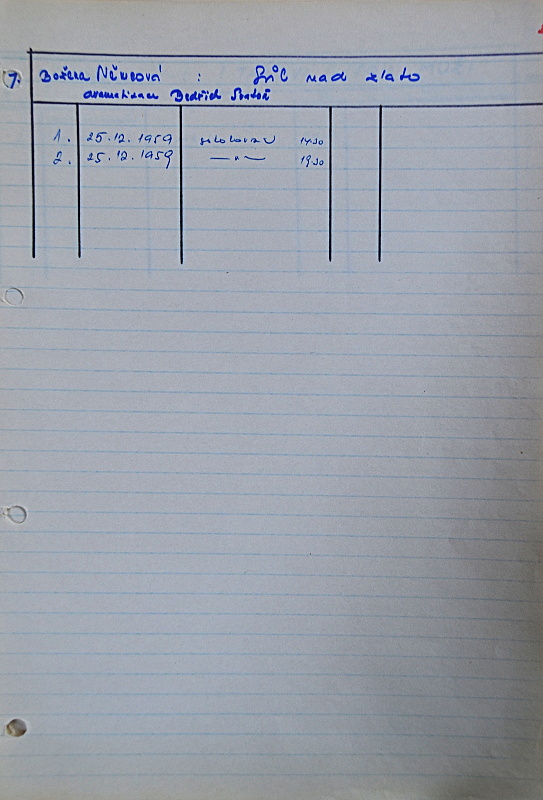 7. Božena Němcová : Sůl nad zlato
dramatizace Bedřich Svatoň
1. 25.12.1959 sokolovna 1430
2. 25.12.1959 —"— 1930